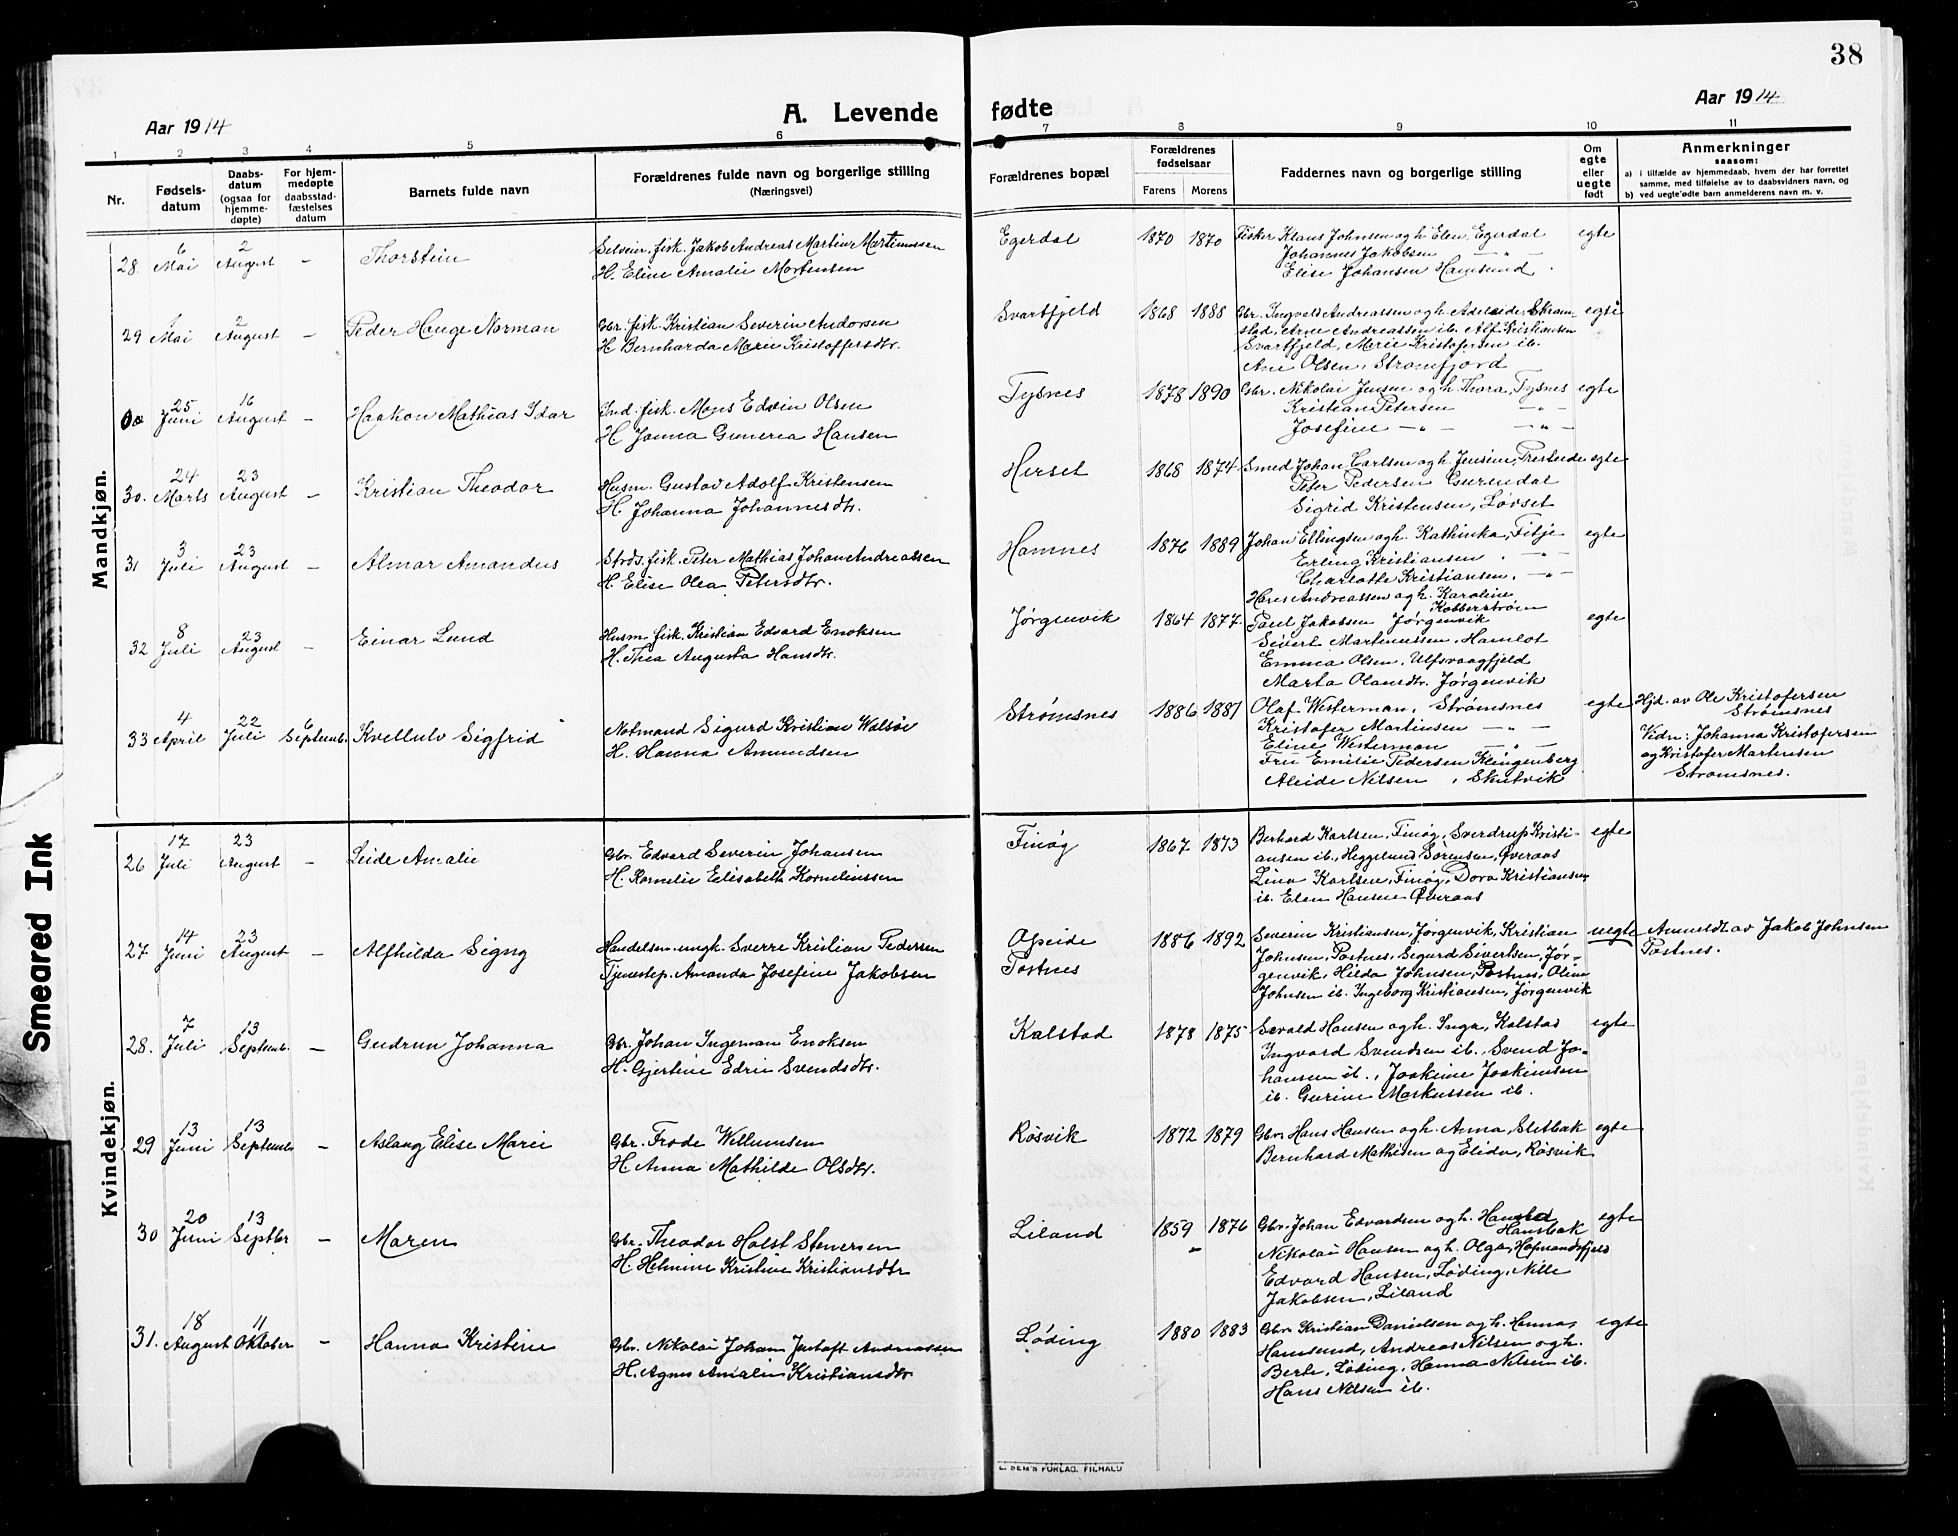 38
Aar 1914
A. Levende fødte
Aar 1914
1 2 3 4 5 6 7 8 9 10 11
Nr.
Fødsels-
datum
Daabs-
datum
(ogsaa for
hjemme-
døpte)
For hjem-
medøpte
daabsstad-
fæstelses
datum
Barnets fulde navn
Forældrenes fulde navn og borgerlige stilling
(Næringsvei)
Forældrenes bopæl
Forældrenes
fødselsaar
Farens Morens
Faddernes navn og borgerlige stilling
Om
egte
eller
uegte
født
Anmerkninger
saasom:
a) i tilfælde av hjemmedaab, hvem der har forrettet
samme, med tilføielse av to daabsvidners navn, og
b) ved uegte fødte barn anmelderens navn m. v.
Mandkjøn.
28. 6 Mai 2 August – Thorstein
Selveier, fisk. Jakob Andreas Martin Martinussen
H. Eline Amalie Mortensen
Egerdal 1870 1870
Fisker Klaus Johnsen og h. Elen, Egerdal
Johannes Jakobsen — " —
Elise Johansen Hamsund.
egte
29 1 Mai 2 August – Peder Hauge Norman
Gbr. fisk. Kristian Severin Andorsen
H. Bernharda Marie Kristoffersdtr.
Svartfjeld 1868 1888
Gbr. Ingvald Andreassen og h. Adelaide, Skram-
stad, Arne Andreassen ib. Alf Kristiansen
Svartfjeld, Marie Kristofersen ib.
Ane Olsen, Strømfjord
egte
25 Juni 16 August – Haakon Mathias Idar
Ind. fisk. Mons Edvin Olsen
H. Janna Guneria Hansen
Tysnes 1878 1890
Gbr. Nikolai Jensen og h. Thora, Tysnes
Kristian Petersen — " —
Josefine — " — — " —
egte
30. 24 Marts 23 August – Kristian Theodor
Husm. Gustav Adolf Kristensen
H. Johanna Johannesdtr.
Herset 1868 1874
Smed Johan Carlsen og h. Jensine, Presteide
Peter Pedersen Gurendal
Sigrid Kristensen, Løvset
egte
31 3 Juli 23 August – Almar Amandus
Strds. fisk. Peter Mathias Johan Andreassen
H. Elise Olea Petersdtr.
Hamnes 1876 1889
Johan Ellingsen og h. Kathinka, Filje
Erling Kristiansen — " —
Charlotte Kristiansen, — " —
Hans Andreassen og h. Karoline
Kobberstrøm
egte
32 8 Juli 23 August – Einar Lund
Husm. fisk. Kristian Edvard Enoksen
H. Thea Augusta Hansdtr.
Jørgenvik 1864 1877
Paul Jakobsen Jørgenvik
Sivert Martinussen, Hamlot
Emma Olsen, Ulfsvaagfjeld
Marta Olausdtr. Jørgenvik
egte
33 4 April 22 Juli 6 Septemb. Kvellulv Sigfrid
Notmand Sigurd Kristian Walsøe
H. Hanna Amundsen
Strømsnes 1886 1887
Olaf Westerman, Strømsnes
Kristofer Martinsen — " —
Eline Westerman — " —
Fru Emilie Pedersen Klingenberg
Aleide Nilsen, Skutvik
egte
Hjd. av Ole Kristofersen
Strømsnes
Vidn: Johanna Kristofersen
og Kristofer Martensen
Strømsnes.
Kvindekjøn.
26 17 Juli 23 August – Leide Amalie
Gbr. Edvard Severin Johansen
H. Kornelie Elisabeth Korneliussen
Finøg 1867 1873
Berhard Karlsen, Finøg, Sverdrup Kristi-
ansen ib., Heggelund Sørensen, Øveraas
Lina Karlsen, Finøg, Dora Kristiansen
ib. Elen Hansen Øveraas
egte
27 14 Juni 23 August – Alfhilda Signy
Handelsm. ungk. Sverre Kristian Pedersen
Tjenestep. Amanda Josefine Jakobsen
Opeide
Postnes
1886 1892
Severin Kristiansen, Jørgenvik, Kristian
Johnsen, Postnes, Segurd Sivertsen, Jør-
genvik, Hilda Johnsen, Postnes, Oline
Johnsen ib. Ingeborg Kristiansen, Jørgenvik
uegte
Anmeldt av Jakob Johnsen
Postnes.
28. 7 Juli 13 Septemb. – Gudrun Johanna
Gbr. Johan Ingerman Enoksen
H. Gjertine Edrie Svendsdtr.
Kalstad 1878 1875
Sevald Hansen og h. Inga, Kalstad
Ingvard Svendsen ib. Svend Jo-
hansen ib., Joakime Joakimsen
ib. Gurine Markussen ib.
egte
29 13 Juni 13 Septemb – Aslaug Elise Marie
Gbr. Frode Wellumsen
H. Anna Mathilde Olsdtr.
Røsvik 1872 1879
Gbr. Hans Hansen og h. Anna, Sletbak
Bernhard Mathisen og Elida, Røsvik
egte
30 20 Juni 13 Septbr – Maren
Gbr. Theodor Holst Stenersen
H. Helmine Kristine Kristiansdtr
Liland 1859 1876
Gbr. Johan Edvardsen og h.
Hansbak
Nikolai Hansen og h. Olga, Hofmandsfjeld
Edvard Hansen, Løding, Nille
Jakobsen, Liland
egte
31. 18 August 11 Oktober – Hanna Kristine
Gbr. Nikolai Johan Jentoft Andreassen
H. Agnes Amalie Kristiansdtr
Løding 1880 1883
Gbr. Kristian Danielsen og h. Hanna,
Hamsund, Andreas Nilsen og h.
Berte, Løding, Hanna Nilsen ib.
Hans Nilsen ib.
egte
SEM'S FORLAG, FILHALD
Smeared Ink